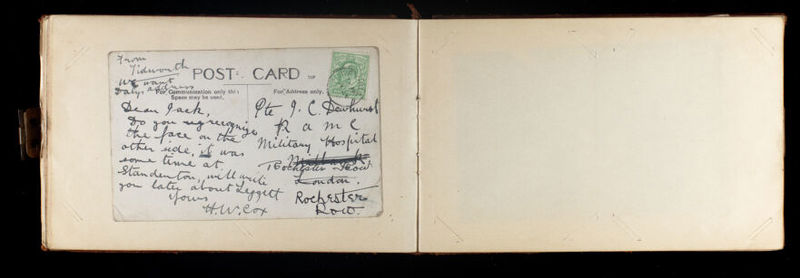 From
Tidworth
We want
Daly's address
POST CARD
For Communication only this
Space may be used.
For Address only.
Dear Jack,
Do you recognize
the face on the
other side, it was
some time at
Standenton, will write
you later about Leggett
Yours
H.W. Cox
Pte J. C. Dewhurst
R a m C
Military Hospital
Millbank
Rochester Row
London.
Rochester
Row.